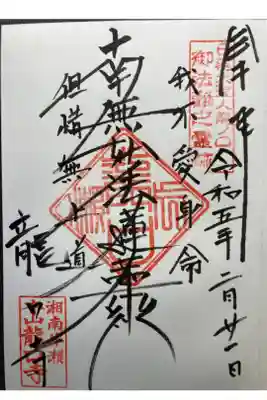 奉拝 令和五年二月廿一日
御法難之霊跡
我不愛身命
南無妙法蓮華経
但惜無上道
龍口寺
湘南片瀬
龍口寺